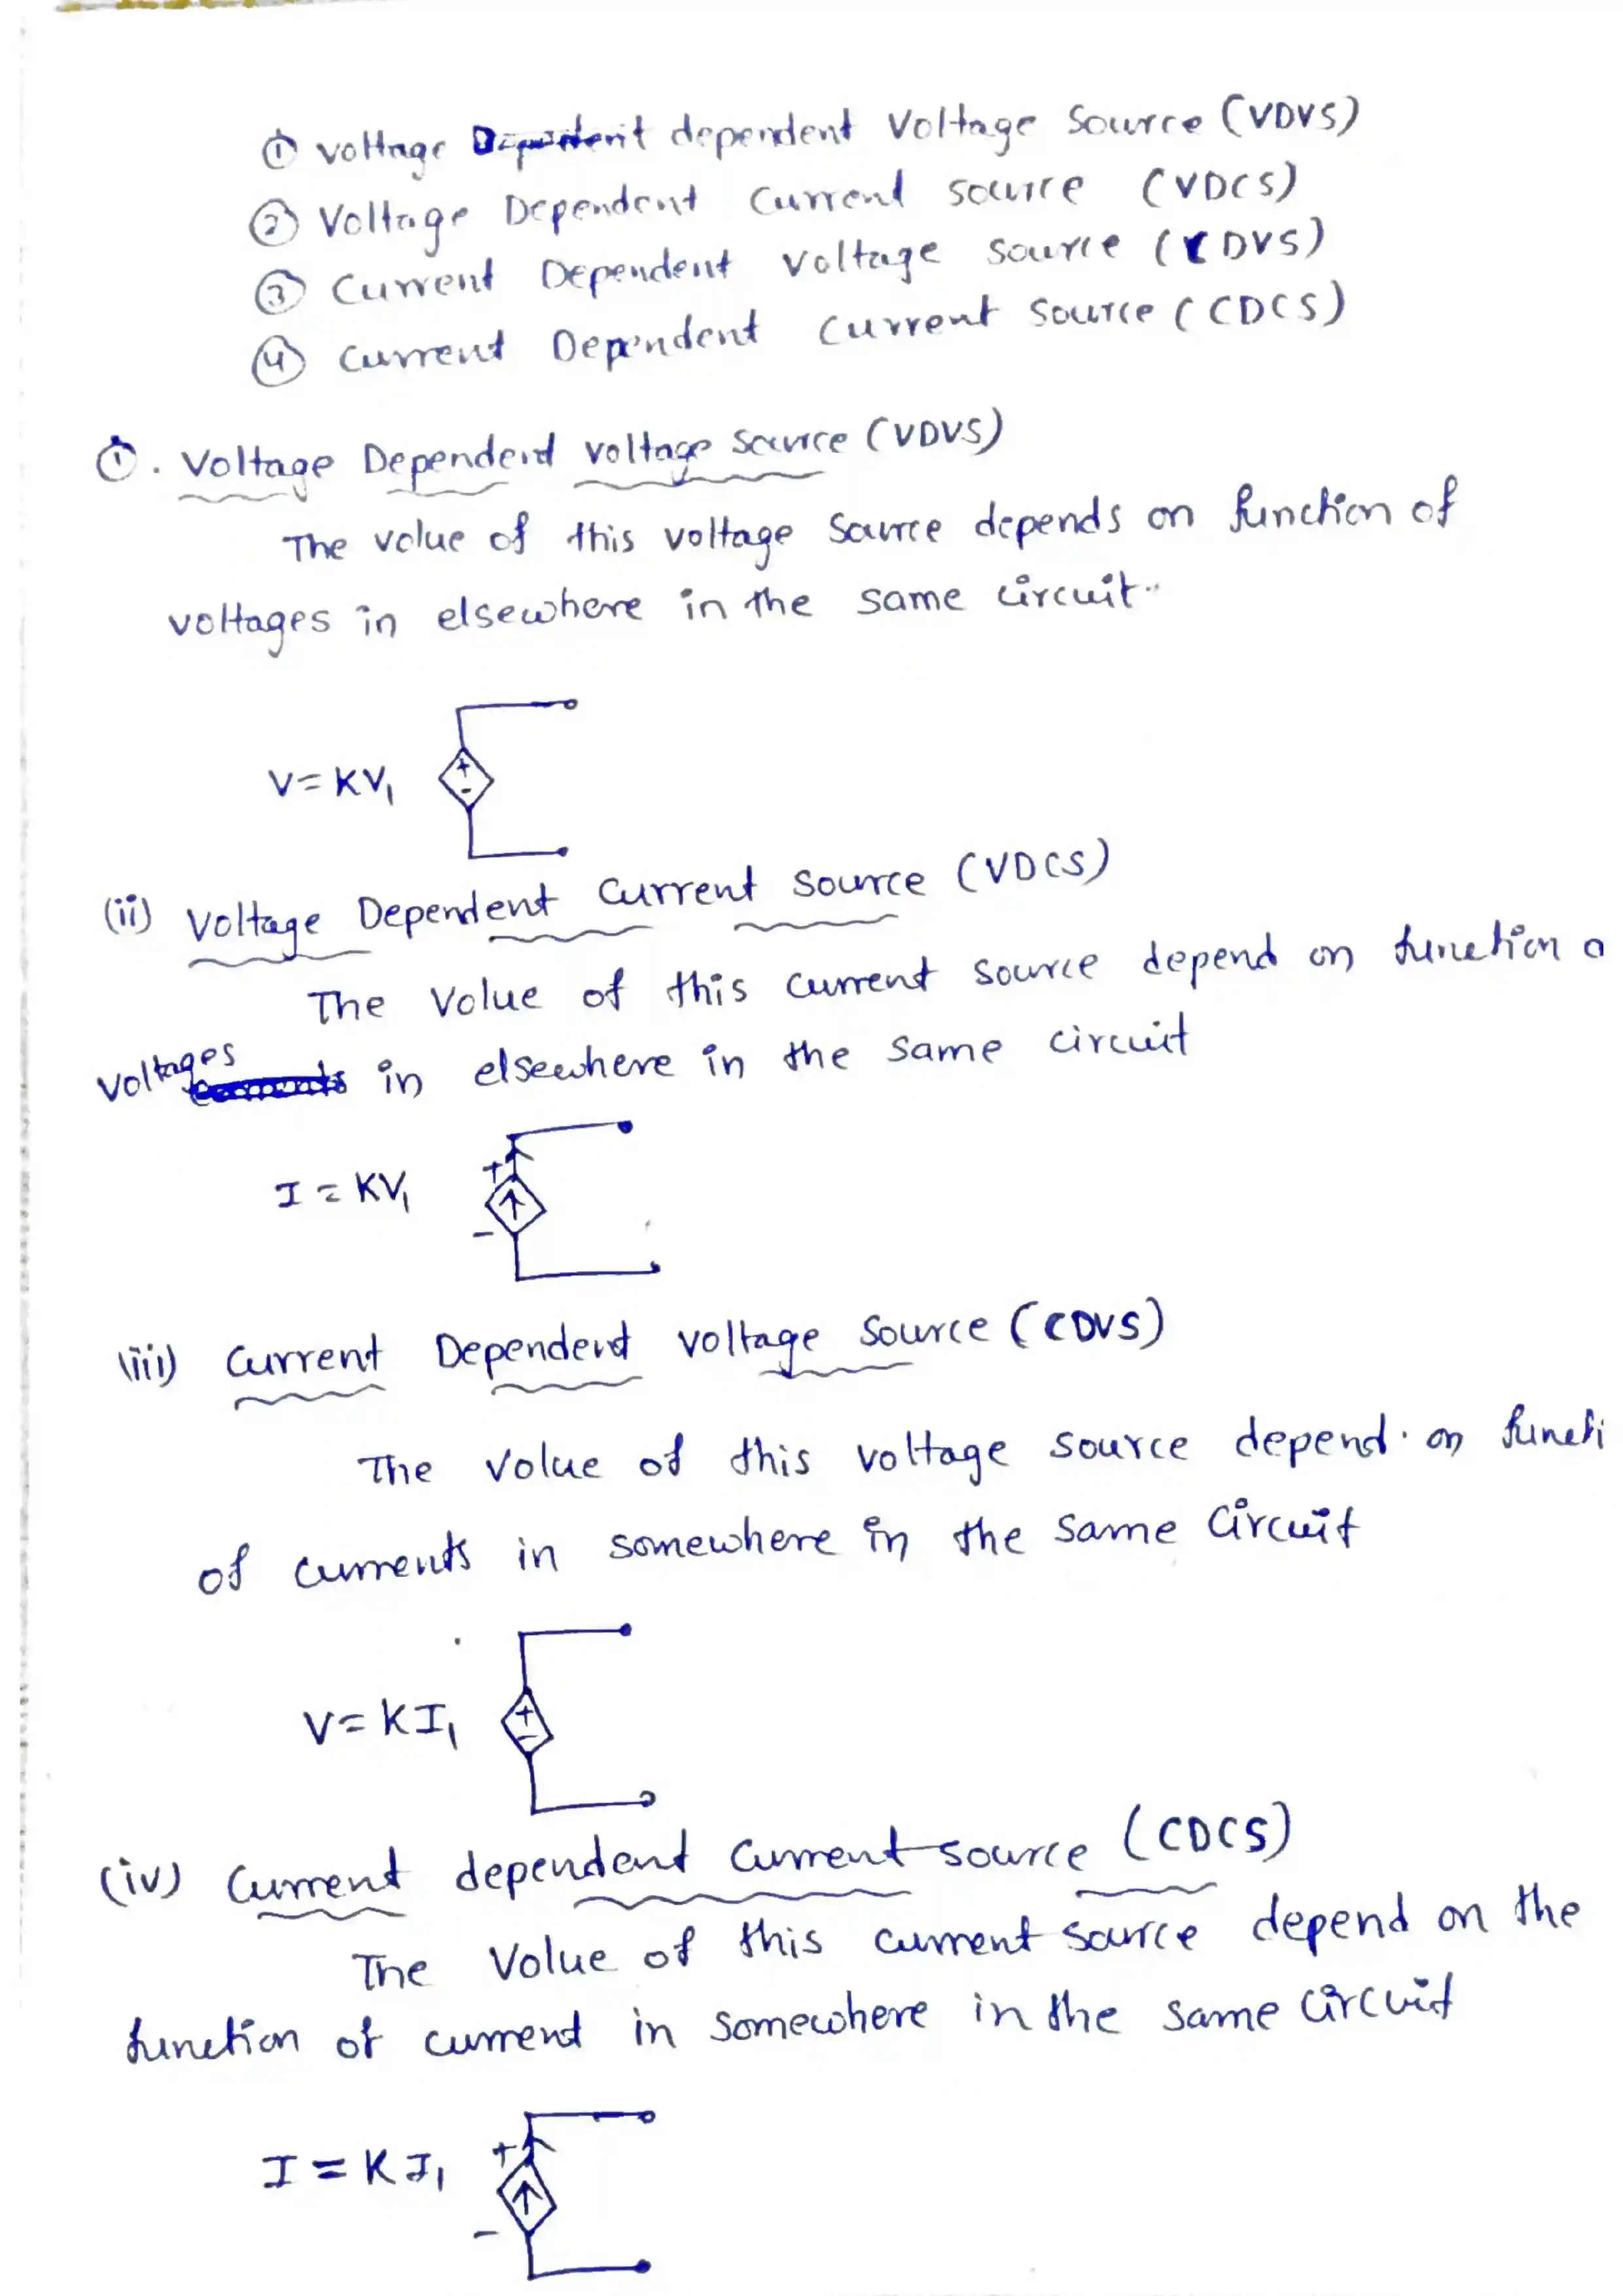 ① voltage dependent Voltage Source (VDVS)
② Voltage Dependent Current source (VDCS)
③ Current Dependent voltage source (CDVS)
④ Current Dependent Current Source (CDCS)
①. Voltage Dependent voltage source (VDVS)
The value of this voltage source depends on function of
voltages in elsewhere in the same circuit.
V=KV₁
+
-
(ii) Voltage Dependent Current Source (VDCS)
The value of this current source depend on function o
voltages in elsewhere in the same circuit
I = KV₁
+
-
(iii) Current Dependent voltage source (CDVS)
The value of this voltage source depend. on functi
of currents in somewhere in the same circuit
V=KI₁
+
-
(iv) Current dependent Current source (CDCS)
The value of this current source depend on the
function of current in somewhere in the same circuit
I = KI₁
+
-